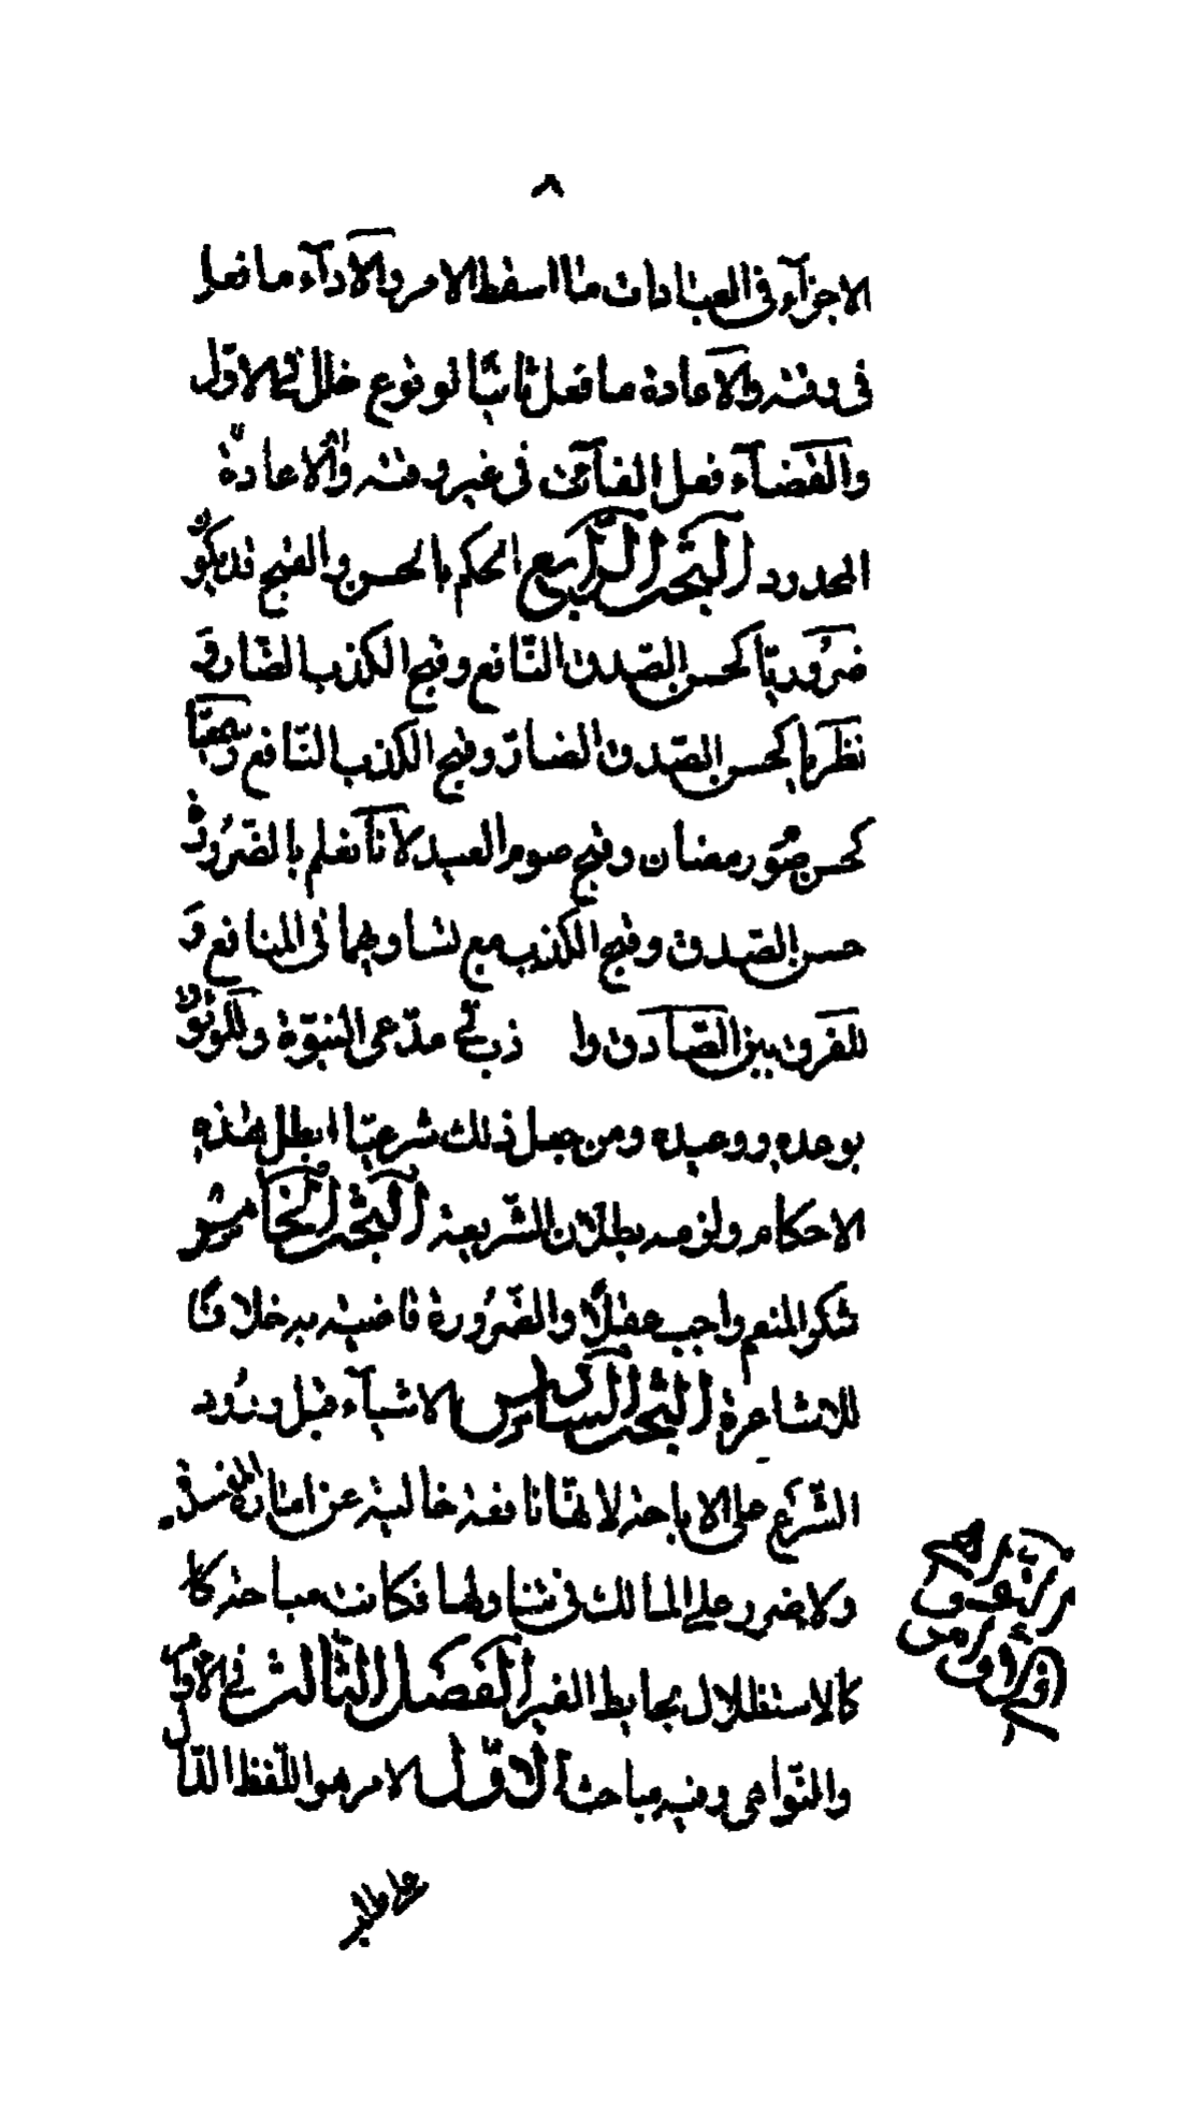 ٨
الاجزآء فى العبادات ما اسقط الامر والاَدآء ما فعل
فى وقته والاعادة ما فعل ثانيًا لوقوع خلل فى الاوّل
والقضآء فعل الفآئت فى غير وقته والاعادة
المحدود البحث الرّابع الحكم بالحسن والقبح قد يكون
ضروريّا كحسن الصّدق النّافع وقبح الكذب الضّار و
نظريا كحسن الصّدق الضارّ وقبح الكذب النّافع وسمعيّا
كحسن صوم رمضان وقبح صوم العيد لاَنّا نعلم بالضّرُورة
حسن الصّدق وقبح الكذب مع تساويهما فى المنافع وَ
للفرق بين الصّادق وا ذب فى مدّعى النبوّة وللوثوق
بوعده ووعيده ومن جعل ذلك شرعيّا ابطل هذه
الاحكام ولزمه بطلان الشّريعة البحث الخامس
شكر المنعم واجب عقلًا والضّرُورة قاضية به خلافًا
للاشاعرة البحث السّادس الاشيآء قبل ورُود
الشّرع على الاباحة لانهّا نافعة خالية عن امارة المفسدة
ولا ضرر على المالك فى تناولها فكانت مباحة كا
كالاستظلال بحايط الغير الفصل الثّالث فى الاَوامر
والنّواهى وفيه مباحث الاوّل الامر هو اللّفظ الدّالّ
على طلب